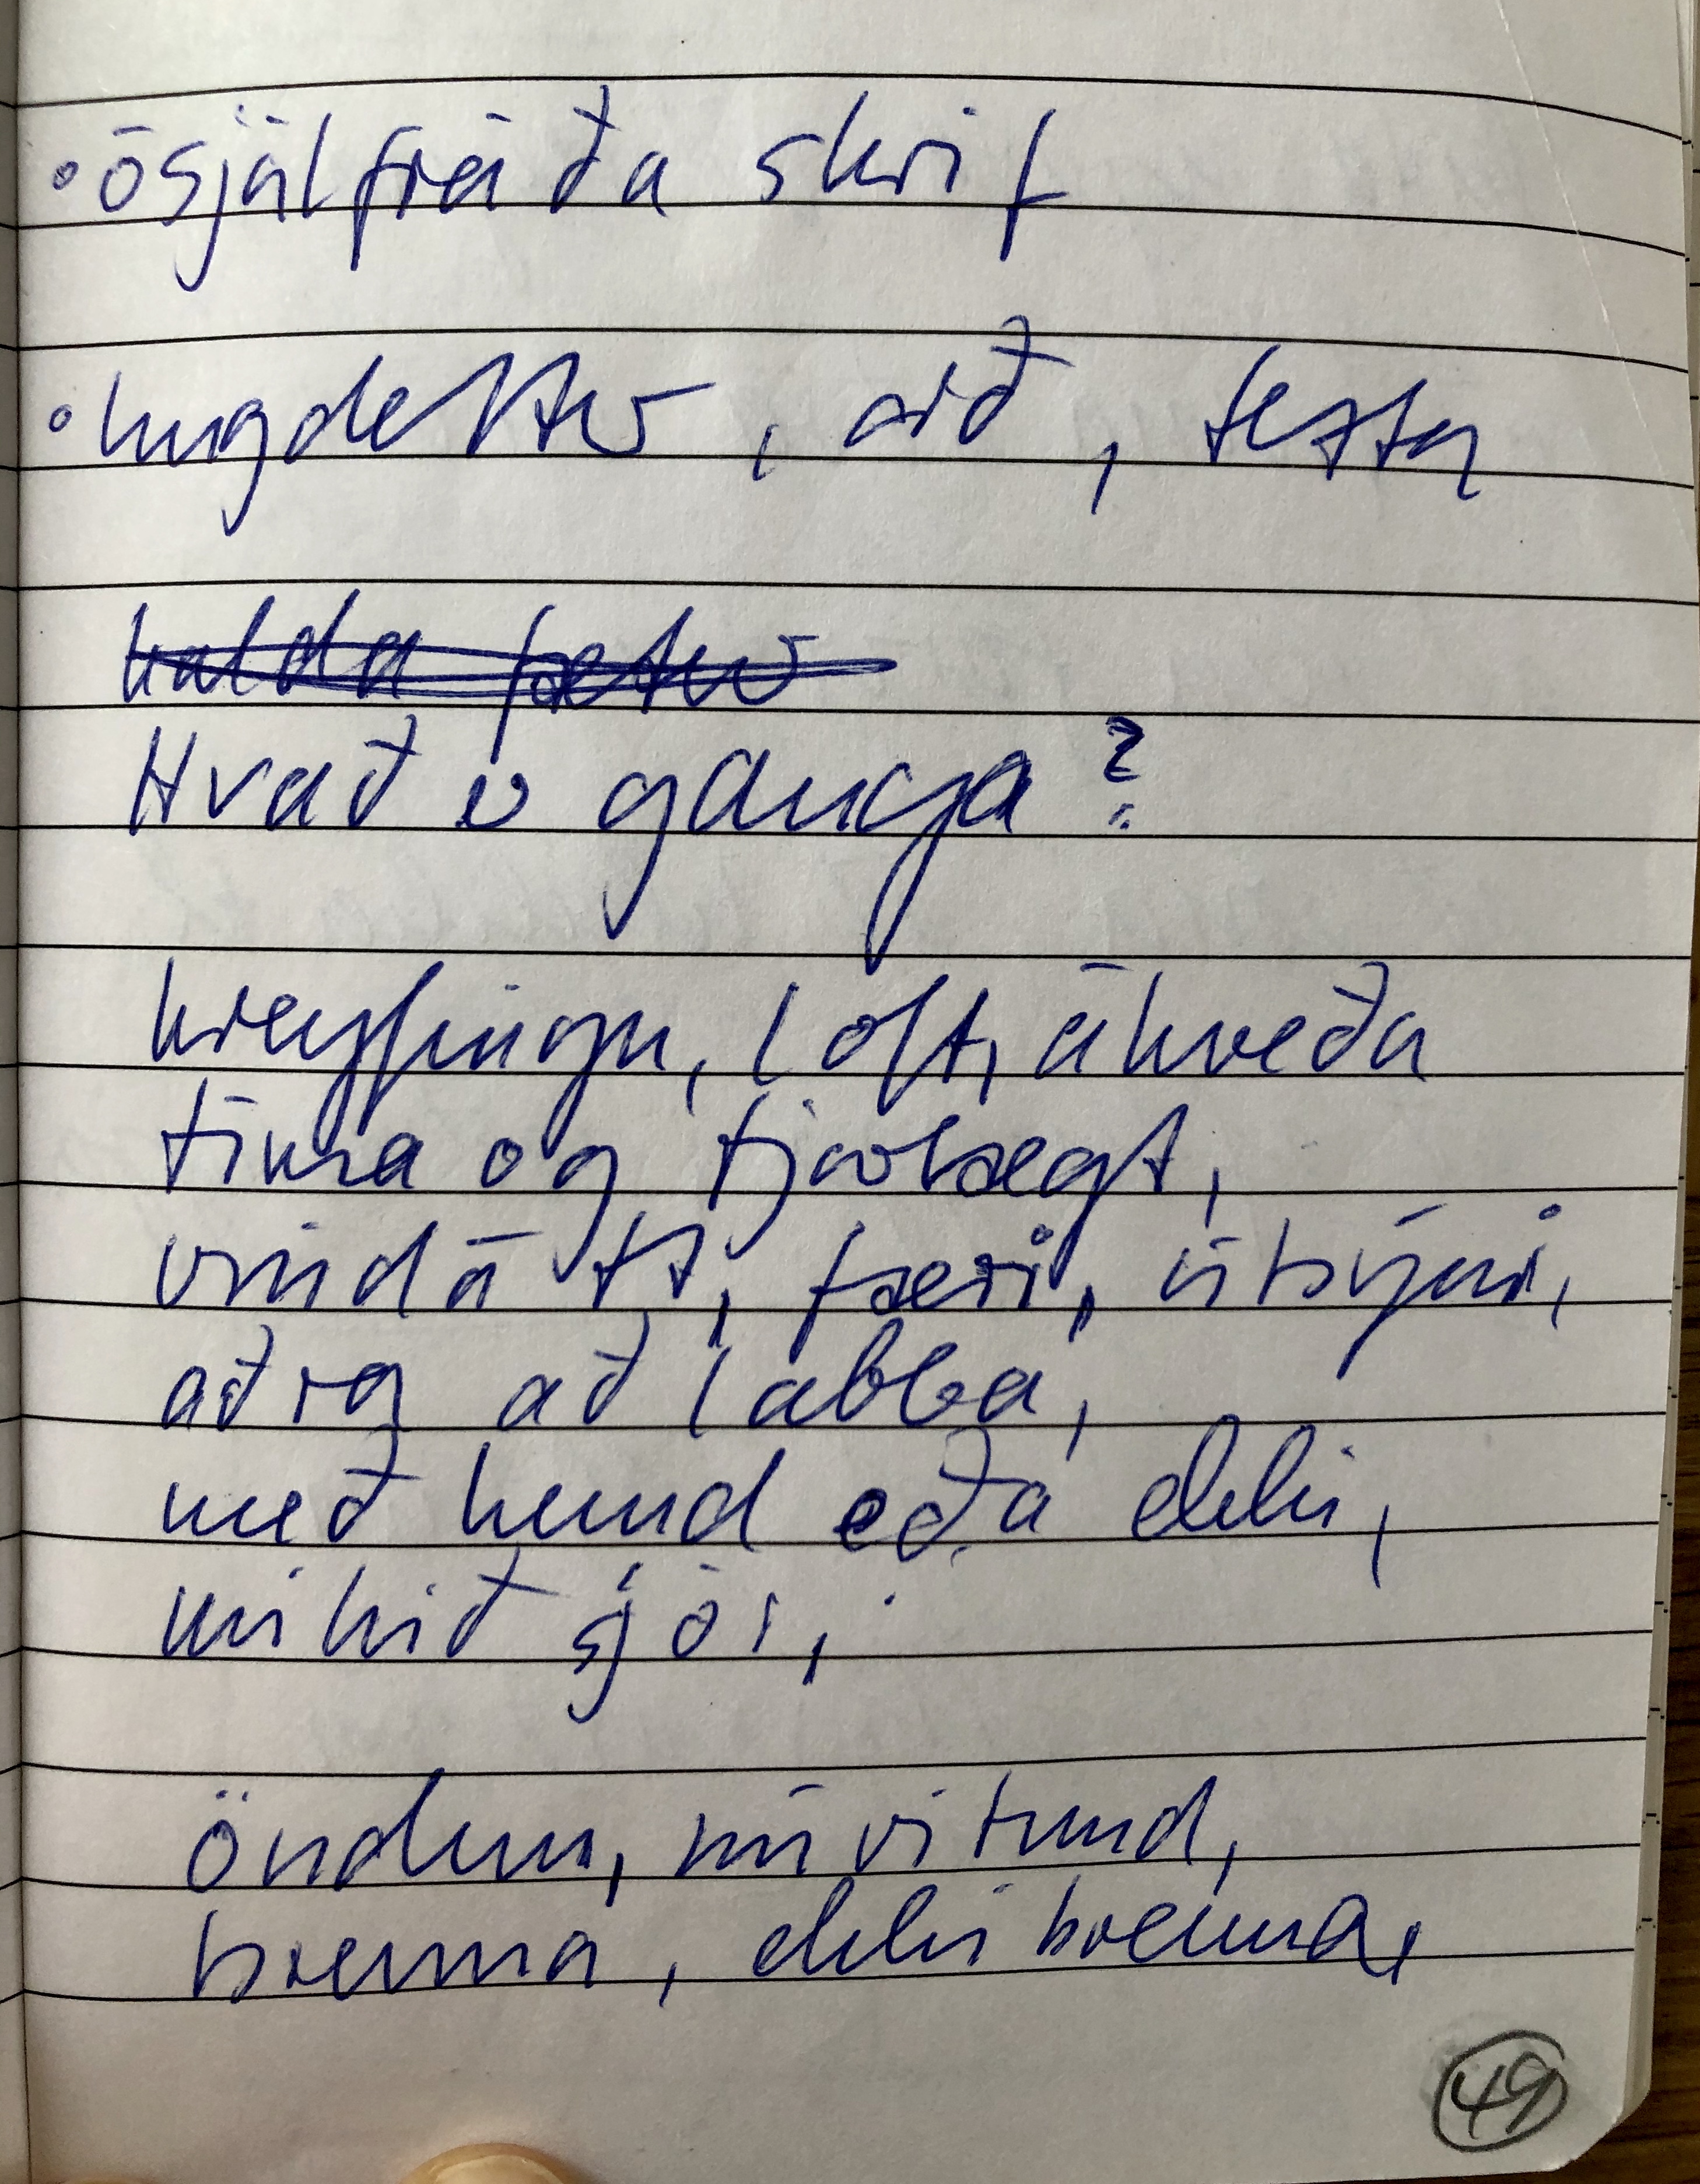 • ósjálfráða skrif
• hugdettur, orð, texta
halda fætur
Hvað er ganga?
hreyfingu, loft, ákveða
tíma og fjarlægt,
vindátt, færi, útsýni,
aðrq að labba,
með hund eða ekki,
mikið sjór,
öndun, núvitund,
brenna, ekki brenna,
49